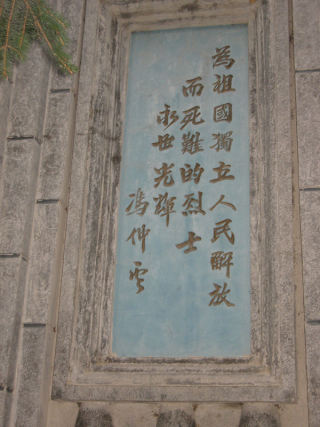 為祖國獨立人民解放
而死難的烈士
永世光輝
馮仲雲